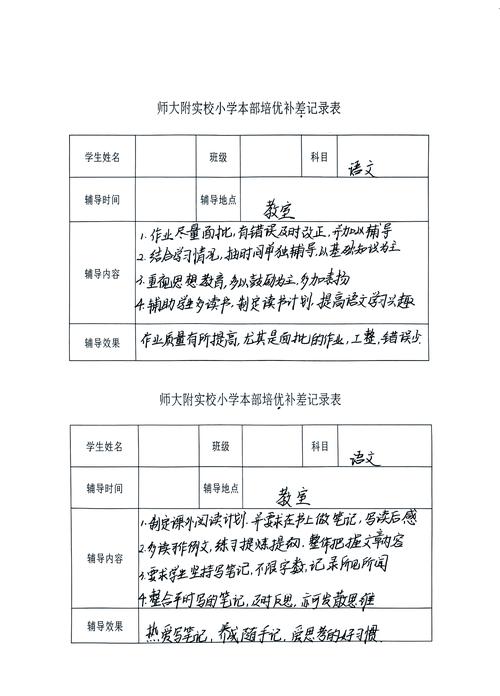 师大附实校小学本部培优补差记录表
学生姓名 班级 科目 语文
辅导时间 辅导地点 教室
辅导内容
1.作业尽量面批,有错误及时改正,并加以辅导
2.结合学习情况,抽时间单独辅导,以基础知识为主
3.重视思想教育,多以鼓励为主,多加表扬
4.辅助学生多读书,制定读书计划,提高语文学习兴趣
辅导效果 作业质量有所提高,尤其是面批的作业,工整,错误少.
师大附实校小学本部培优补差记录表
学生姓名 班级 科目 语文
辅导时间 辅导地点 教室
辅导内容
1.制定课外阅读计划.并要求在书上做笔记,写读后感
2.多读习作例文,练习提炼提纲.整体把握文章内容
3.要求学生坚持写笔记,不限字数,记录所见所闻
4.整合平时写的笔记,及时反思,亦可发散思维
辅导效果 热爱写笔记,养成随手记,爱思考的好习惯.